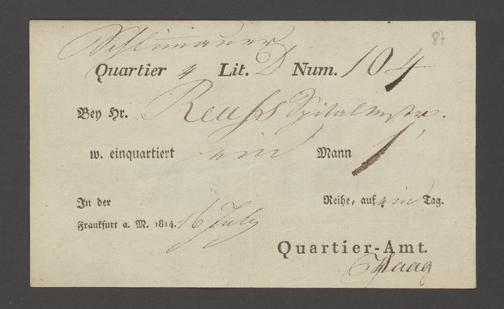 Schlimauer
Quartier 4 Lit. D Num. 104
Bey Hr. Reuhs Spitalmstr.
w. einquartiert ein Mann 1
In der Reihe, auf ein Tag.
Frankfurt a. M. 1814. 16 July
Quartier-Amt.
Haag